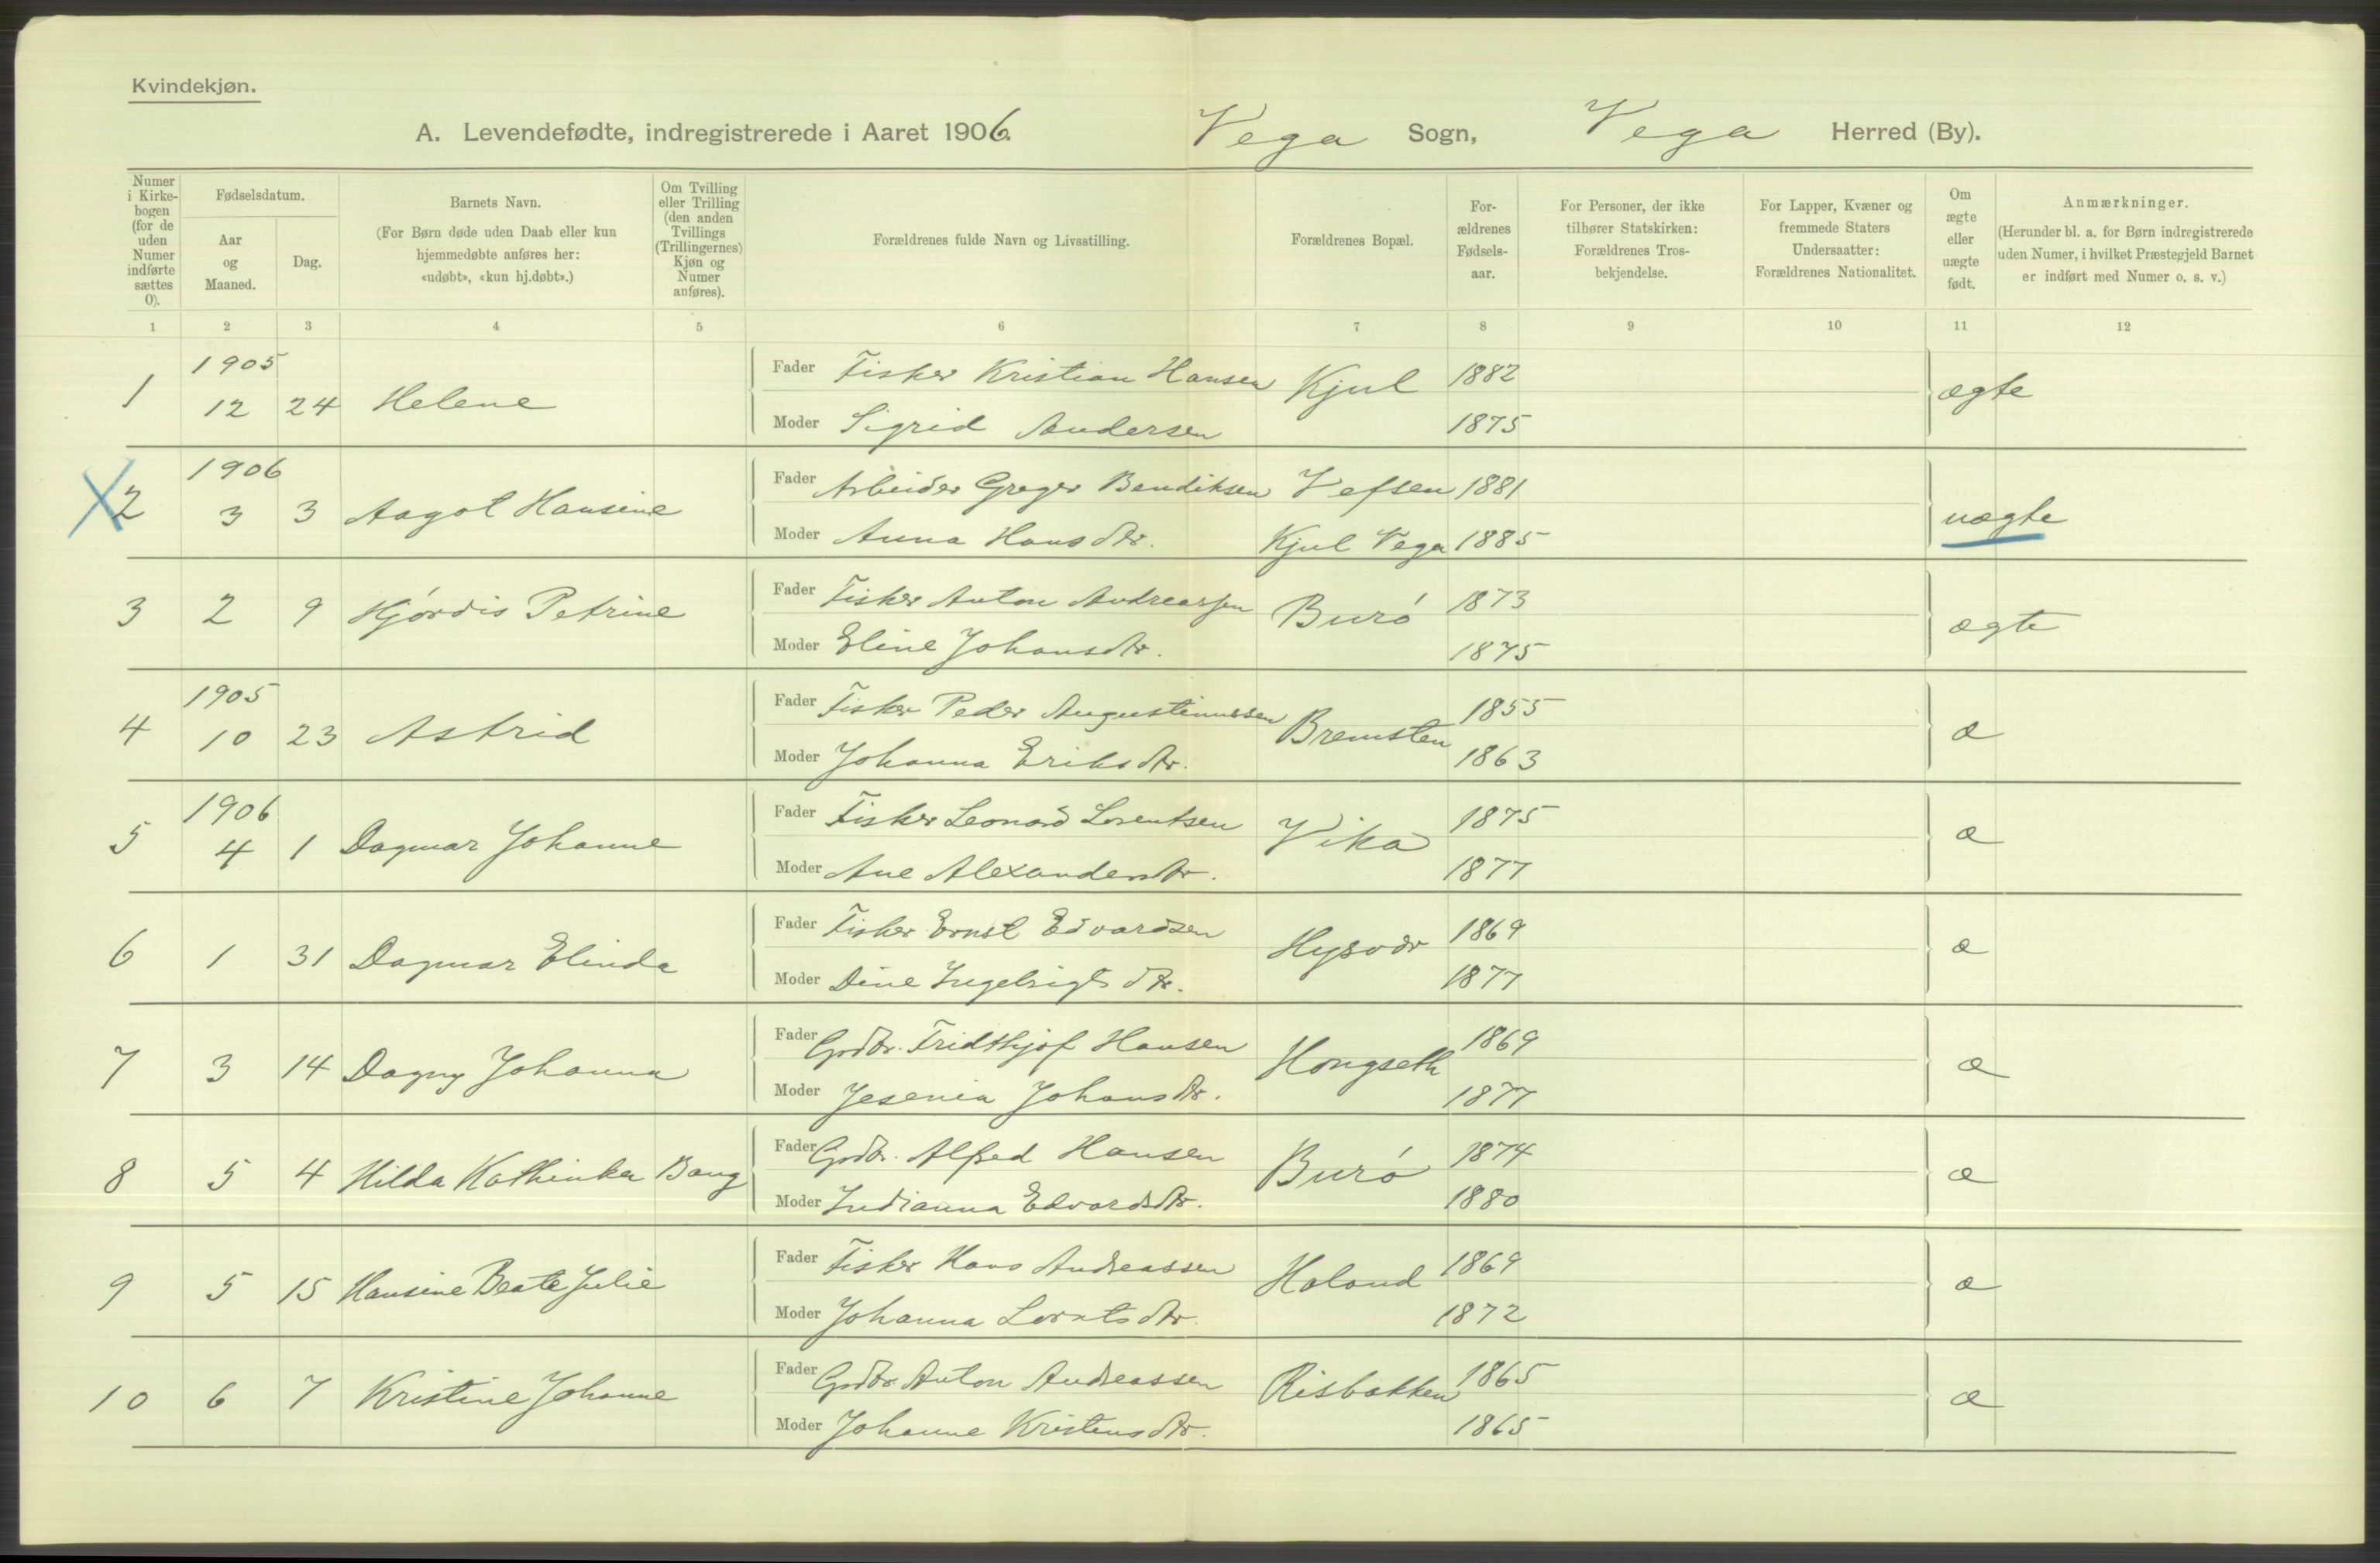 Kvindekjøn.
A. Levendefødte, indregistrerede i Aaret 1906. Vega Sogn, Vega Herred (By).
Numer i Kirkebogen (for de uden Numer indførte sættes 0).
Fødselsdatum.
Aar og Maaned.
Dag.
Barnets Navn.
(For Børn døde uden Daab eller kun hjemmedøbte anføres her: «udøbt», «kun hj.døbt».)
Om Tvilling eller Trilling (den anden Tvillings (Trillingernes) Kjøn og Numer anføres).
Forældrenes fulde Navn og Livsstilling.
Forældrenes Bopæl.
Forældrenes Fødselsaar.
For Personer, der ikke tilhører Statskirken: Forældrenes Trosbekjendelse.
For Lapper, Kvæner og fremmede Staters Undersaatter: Forældrenes Nationalitet.
Om ægte eller uægte født.
Anmærkninger.
(Herunder bl. a. for Børn indregistrerede uden Numer, i hvilket Præstegjeld Barnet er indført med Numer o. s. v.)
1 2 3 4 5 6 7 8 9 10 11 12
1905
1 12 24 Helene Fader Fisker Kristian Hansen Kjul 1882 ægte
Moder Sigrid Andersen 1875
1906
X 2 3 3 Aagot Hansine Fader Arbeider Greger Bendiksen Vefsen 1881 uægte
Moder Anna Hansdtr. Kjul Vega 1885
3 2 9 Hjórdis Petrine Fader Fisker Anton Andreassen Buró 1873 ægte
Moder Eline Johansdtr. 1875
1905
4 10 23 Astrid Fader Fisker Peder Augustinussen Bremsten 1855 æ
Moder Johanna Eriksdtr. 1863
1906
5 4 1 Dagmar Johanne Fader Fisker Leonard Lorentsen Vika 1875 æ
Moder Ane Alexandersdtr. 1877
6 1 31 Dagmar Elinda Fader Fisker Ernst Edvardsen Hysvær 1869 æ
Moder Dine Ingebrigtsdtr. 1877
7 3 14 Dagny Johanna Fader Grdbr. Fridthjof Hansen Hongseth 1869 æ
Moder Jesenia Johansdtr. 1877
8 5 4 Hilda Kathinka Bang Fader Grdbr. Alfred Hansen Buró 1874 æ
Moder Indianna Edvardsdtr. 1880
9 5 15 Hansine Beate Julie Fader Fisker Hans Andreassen Holand 1869 æ
Moder Johanna Lorntsdtr. 1872
10 6 7 Kristine Johanne Fader Grdbr. Anton Andreassen Risbakken 1865 æ
Moder Johanne Kristensdtr. 1865